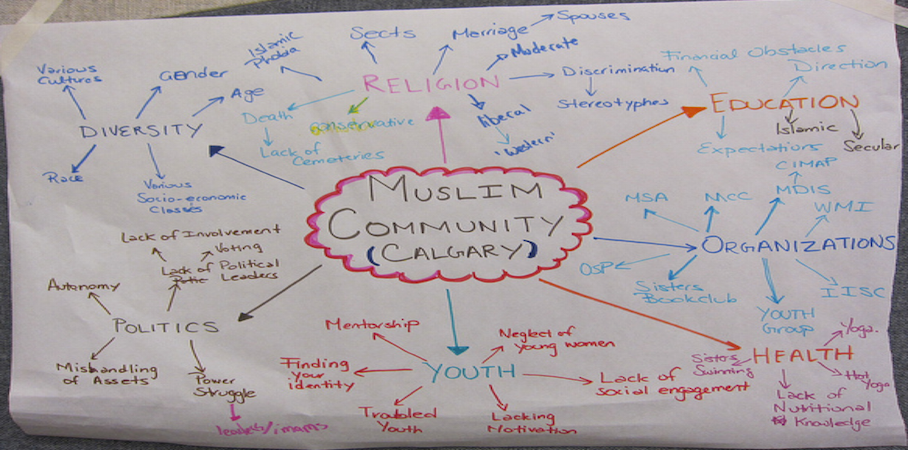 MUSLIM
COMMUNITY
(CALGARY)
RELIGION
Sects
Merriage
Spouses
Moderate
Discrimination
Stereotyphes
liberal
'western'
conservative
Death
Lack of
Cemeteries
Islamic
Phobia
DIVERSITY
Various
Cultures
Gender
Age
Race
Various
Socio-economic
Classes
EDUCATION
Financial Obstacles
Direction
Islamic
Secular
Expectations
ORGANIZATIONS
MSA
MCC
MDIS
CIMAP
WMI
IISC
YOUTH
Group
Sisters
Bookclub
OSP
HEALTH
Yoga.
Hot
Yoga
Lack of
Nutritional
Knowledge
Sisters
Swimming
YOUTH
Mentorship
Neglect of
young women
Finding
Your
identity
Lack of
social engagement
Troubled
Youth
Lacking
Motivation
POLITICS
Lack of Involvement
Voting
Lack of Political
Leaders
Autonomy
Mishandling
of Assets
Power
Struggle
leaders/imams